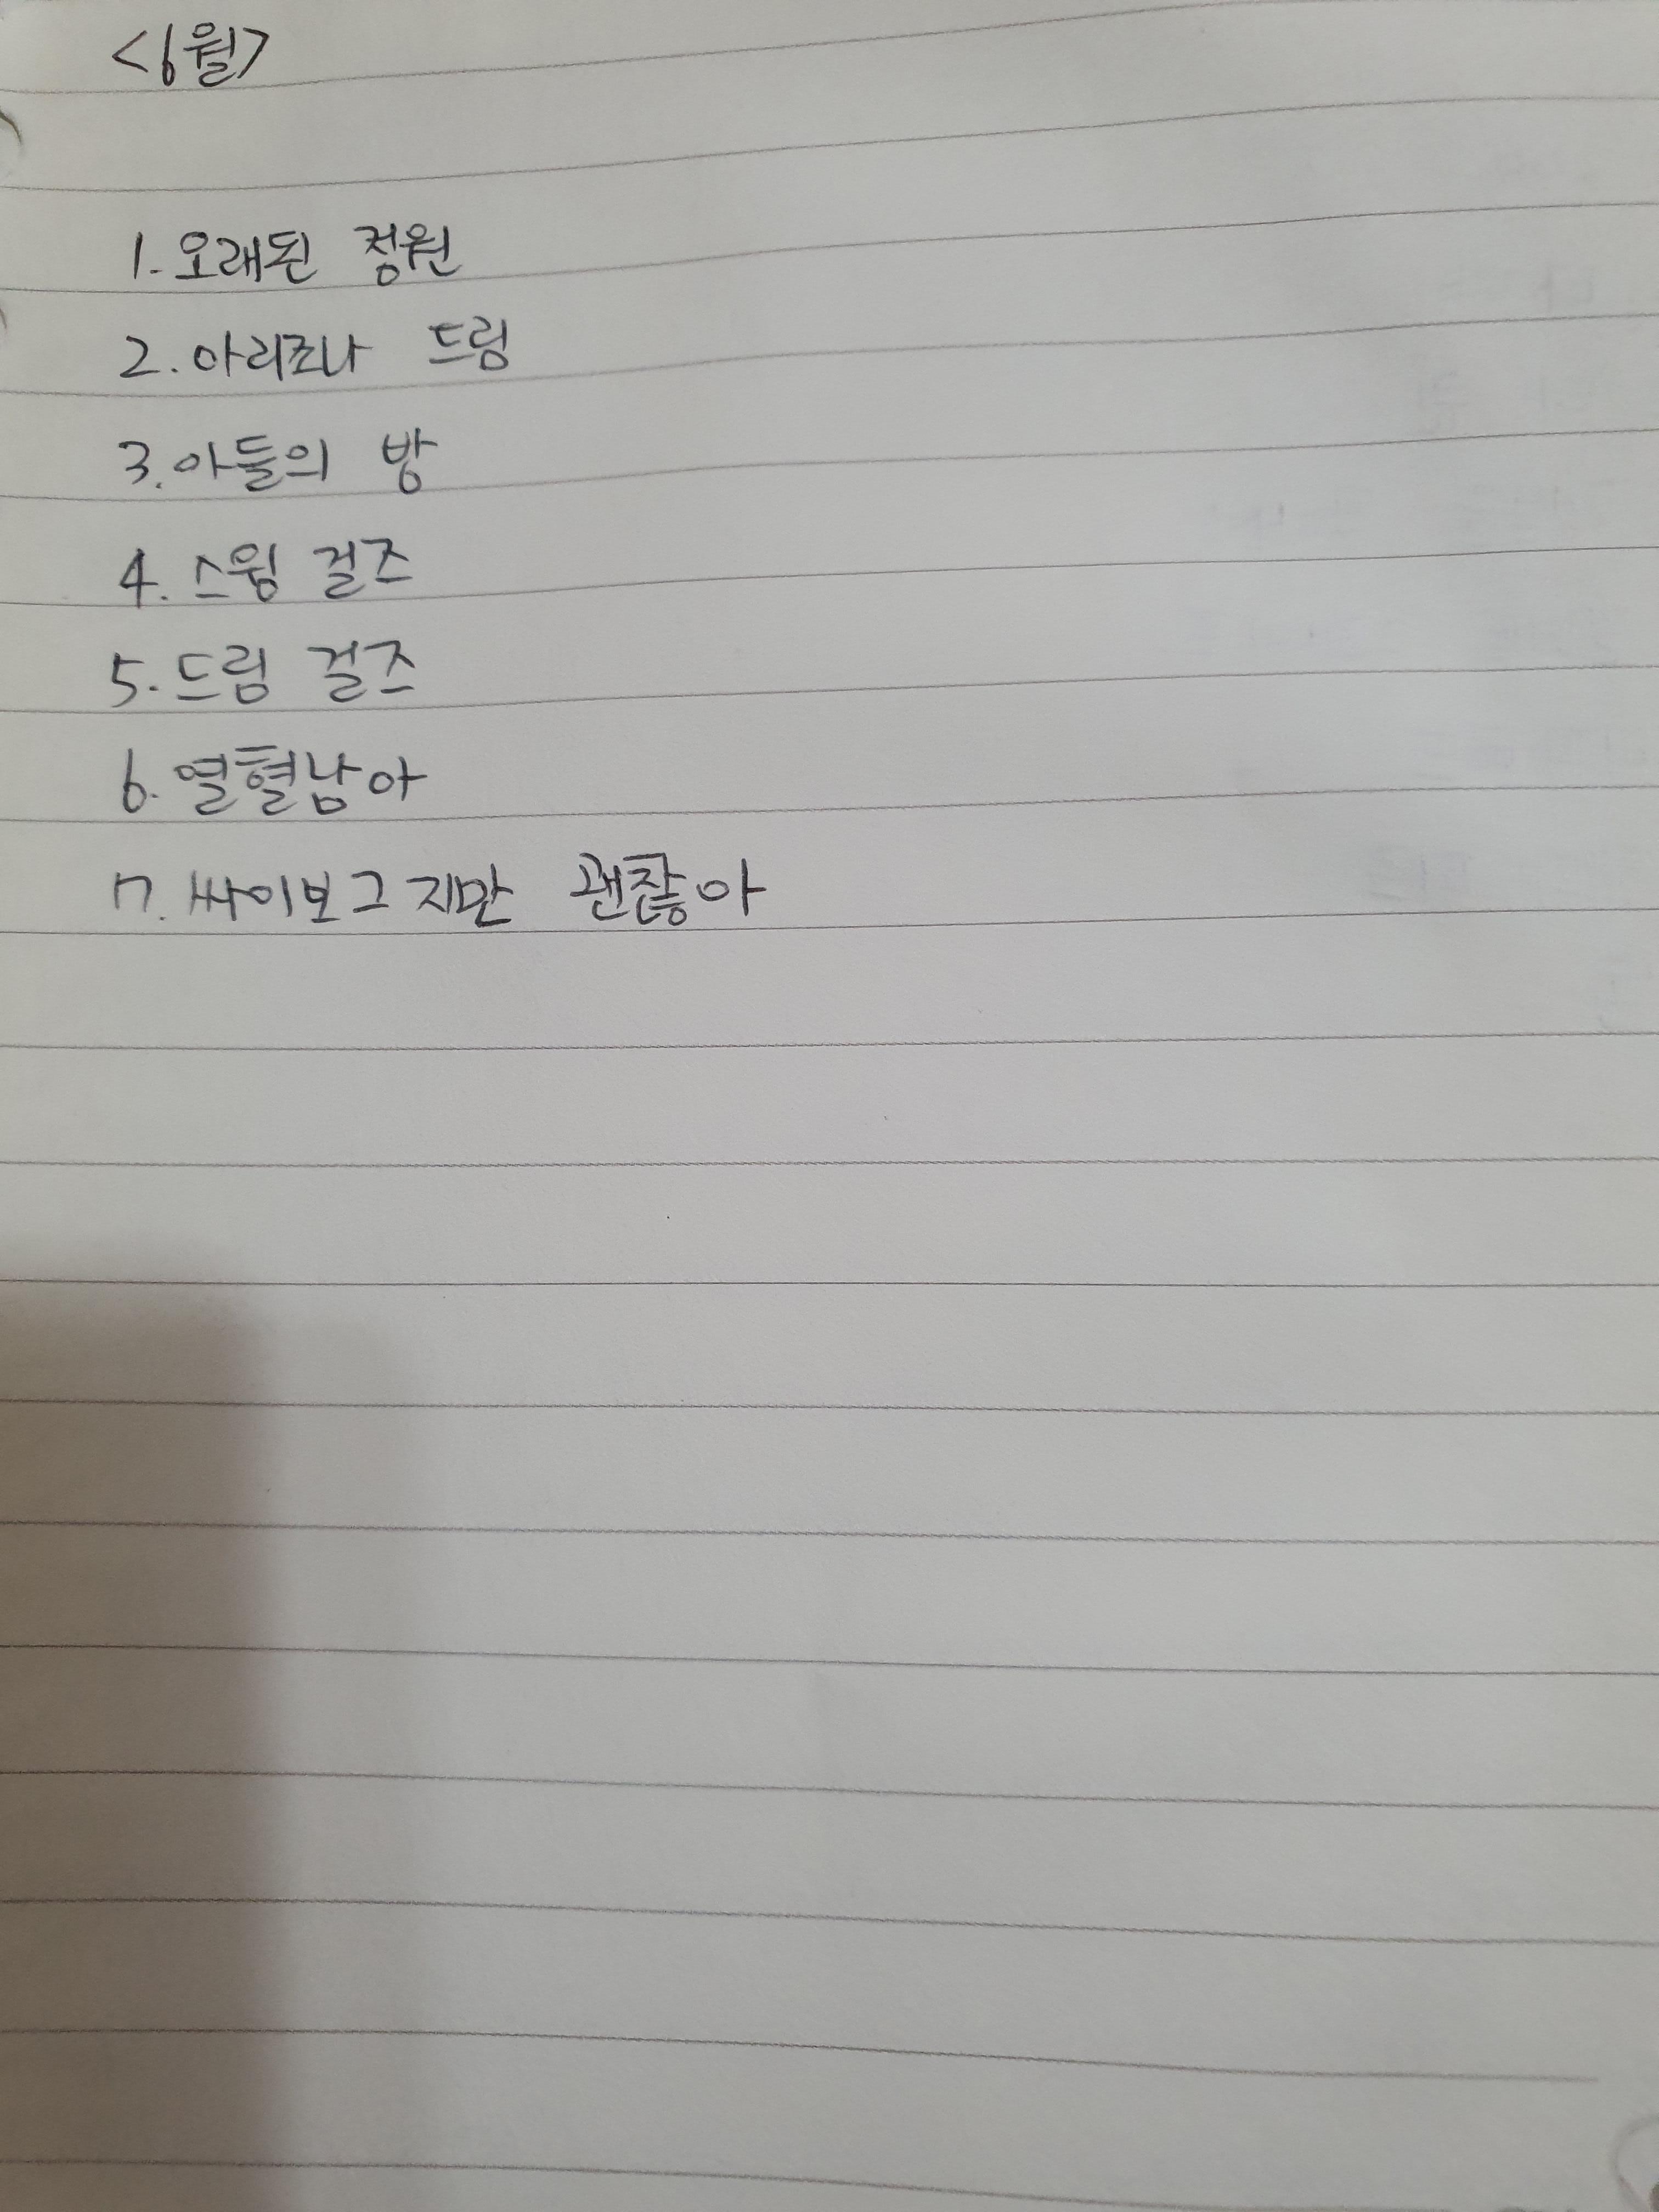 <6월>
1. 오래된 정원
2. 아리조나 드림
3. 아들의 방
4. 스윙 걸즈
5. 드림 걸즈
6. 열혈남아
7. 싸이보그지만 괜찮아